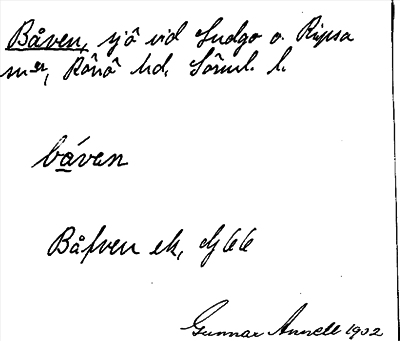 Båven, sjö vid Ludgo o. Ripsa
snr, Rönö hd, Sörml. l.
båvən
Båfven ek, Gj 66
Gunnar Annell 1902